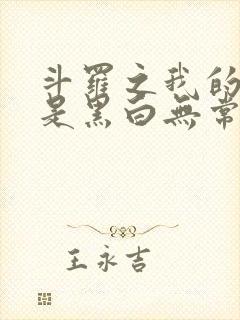 斗羅之我的
是黑白無常
王永吉